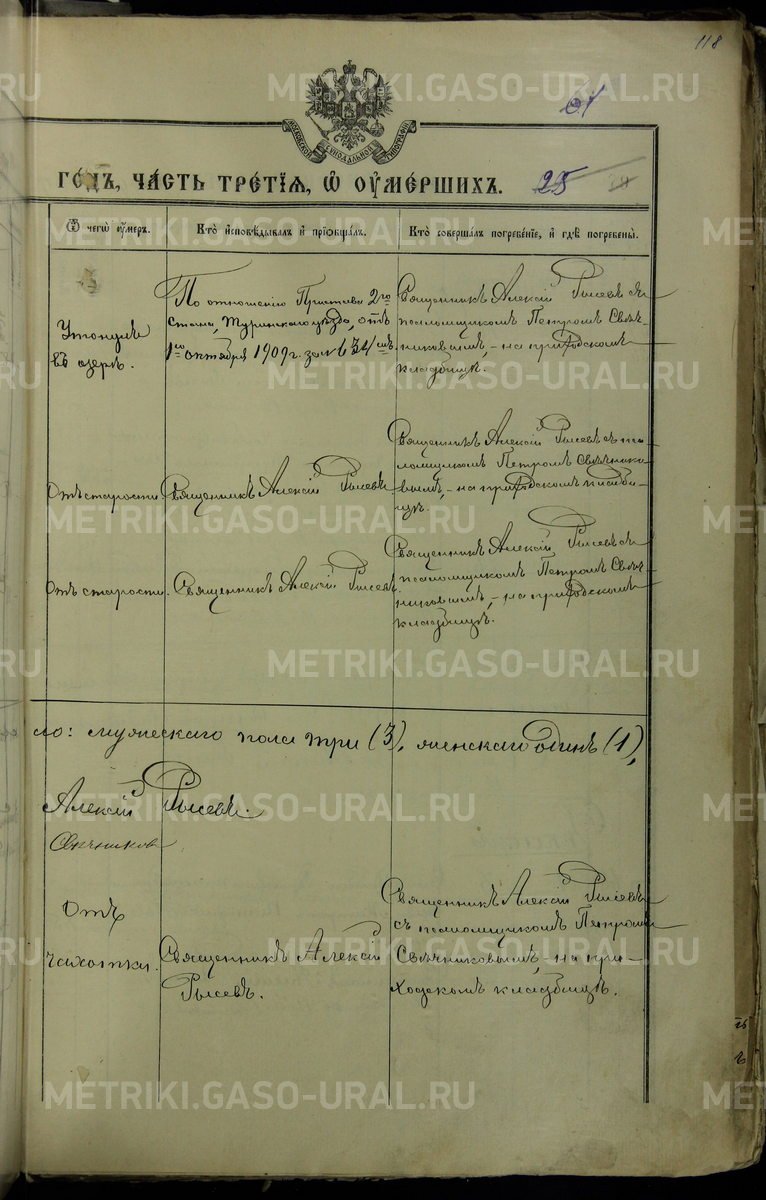 118
МОСКОВСКОЙ СѴНОДАЛЬНОЙ ТИПОГРАФІИ
ГОДЪ, ЧАСТЬ ТРЕТІЯ, Ѿ ОУМЕРШИХЪ. 25
Ѿ чегѡ оумеръ.
Кто исповѣдывалъ и пріобщалъ.
Кто совершалъ погребеніе, и гдѣ погребены.
Утонулъ
въ озерѣ.
По отношенію Пристава 2го
стана, Туринскаго уѣзда, отъ
1го октября 1909 г. за №
Священникъ Алексій Рысевъ съ
псаломщикомъ Петромъ Свѣч-
никовымъ, – на приходскомъ
кладбищѣ.
Отъ старости.
Священникъ Алексій Рысевъ
Священникъ Алексій Рысевъ съ пса-
ломщикомъ Петромъ Свѣчнико-
вымъ, – на приходскомъ кладби-
щѣ.
Отъ старости.
Священникъ Алексій Рысевъ.
Священникъ Алексій Рысевъ съ
псаломщикомъ Петромъ Свѣч-
никовымъ, – на приходскомъ
кладбищѣ.
ло: мужескаго пола три (3), женскаго одинъ (1),
Алексій Рысевъ.
Свѣчников
Отъ
чахотки.
Священникъ Алексій
Рысевъ.
Священникъ Алексій Рысевъ
съ псаломщикомъ Петромъ
Свѣчниковымъ, – на при-
ходскомъ кладбищѣ.
METRIKI.GASO-URAL.RU